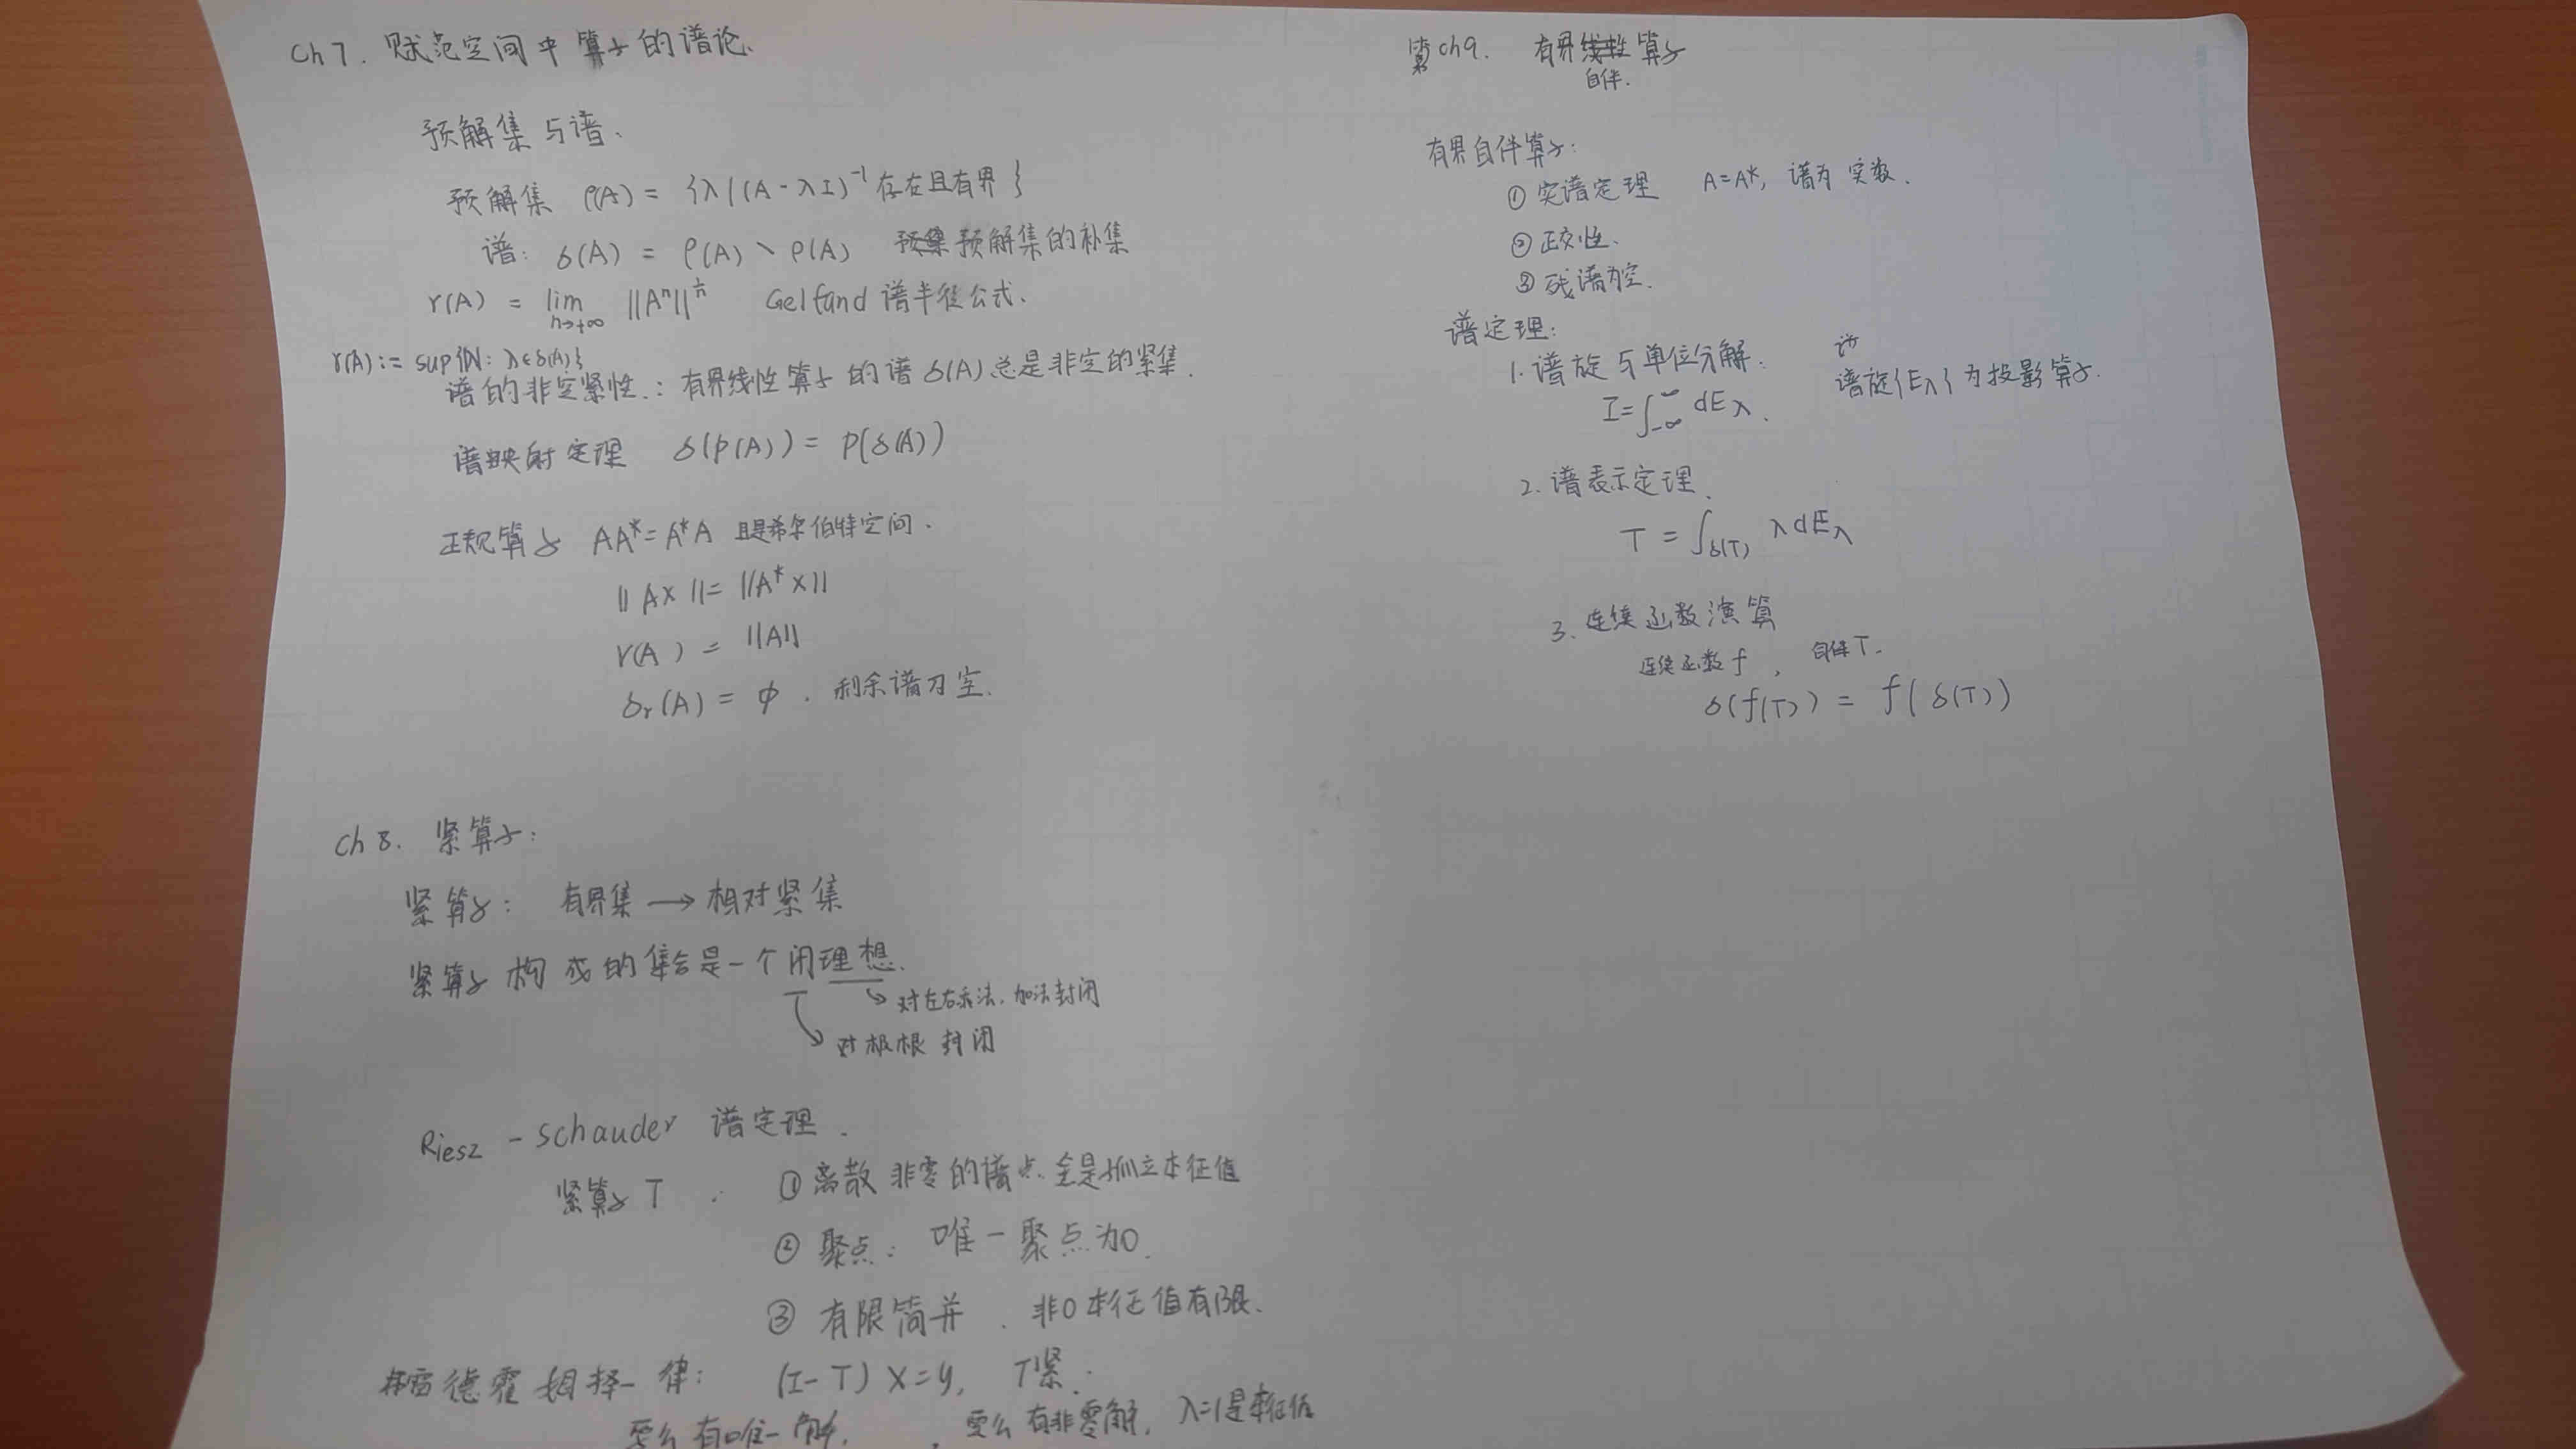 Ch 7. 赋范空间中算子的谱论.
预解集与谱.
预解集 ρ(A) = {λ | (A - λI)⁻¹ 存在且有界}
谱: δ(A) = ρ(A) \ ρ(A) 预解集的补集
r(A) = lim n→+∞ ||Aⁿ||^(1/n) Gelfand 谱半径公式.
r(A) := sup{|λ|: λ∈δ(A)}
谱的非空紧性.: 有界线性算子的谱 δ(A) 总是非空的紧集.
谱映射定理 δ(p(A)) = p(δ(A))
正规算子 AA* = A*A 且是希尔伯特空间.
||Ax|| = ||A*x||
r(A) = ||A||
δr(A) = φ. 剩余谱为空.
Ch 8. 紧算子:
紧算子: 有界集 → 相对紧集
紧算子构成的集合是一个闭理想.
对左右乘法, 加法封闭
对极根封闭
Riesz - Schauder 谱定理.
紧算子 T. ① 离散 非零的谱点全是孤立本征值
② 聚点: 唯一聚点为0.
③ 有限简并. 非0本征值有限.
德霍姆择一律: (I-T)x=y, T紧.
要么有唯一解, 要么有非零解, λ=1是本征值
Ch9. 有界线性算子
自伴.
有界自伴算子:
① 实谱定理 A=A*, 谱为实数.
② 正交性.
③ 残谱为空.
谱定理:
1. 谱旋与单位分解:
谱旋{Eλ}为投影算子.
I=∫_{-∞}^{∞} dEλ.
2. 谱表示定理.
T = ∫_{δ(T)} λdEλ
3. 连续函数演算
连续函数 f, 自伴T.
δ(f(T)) = f(δ(T))